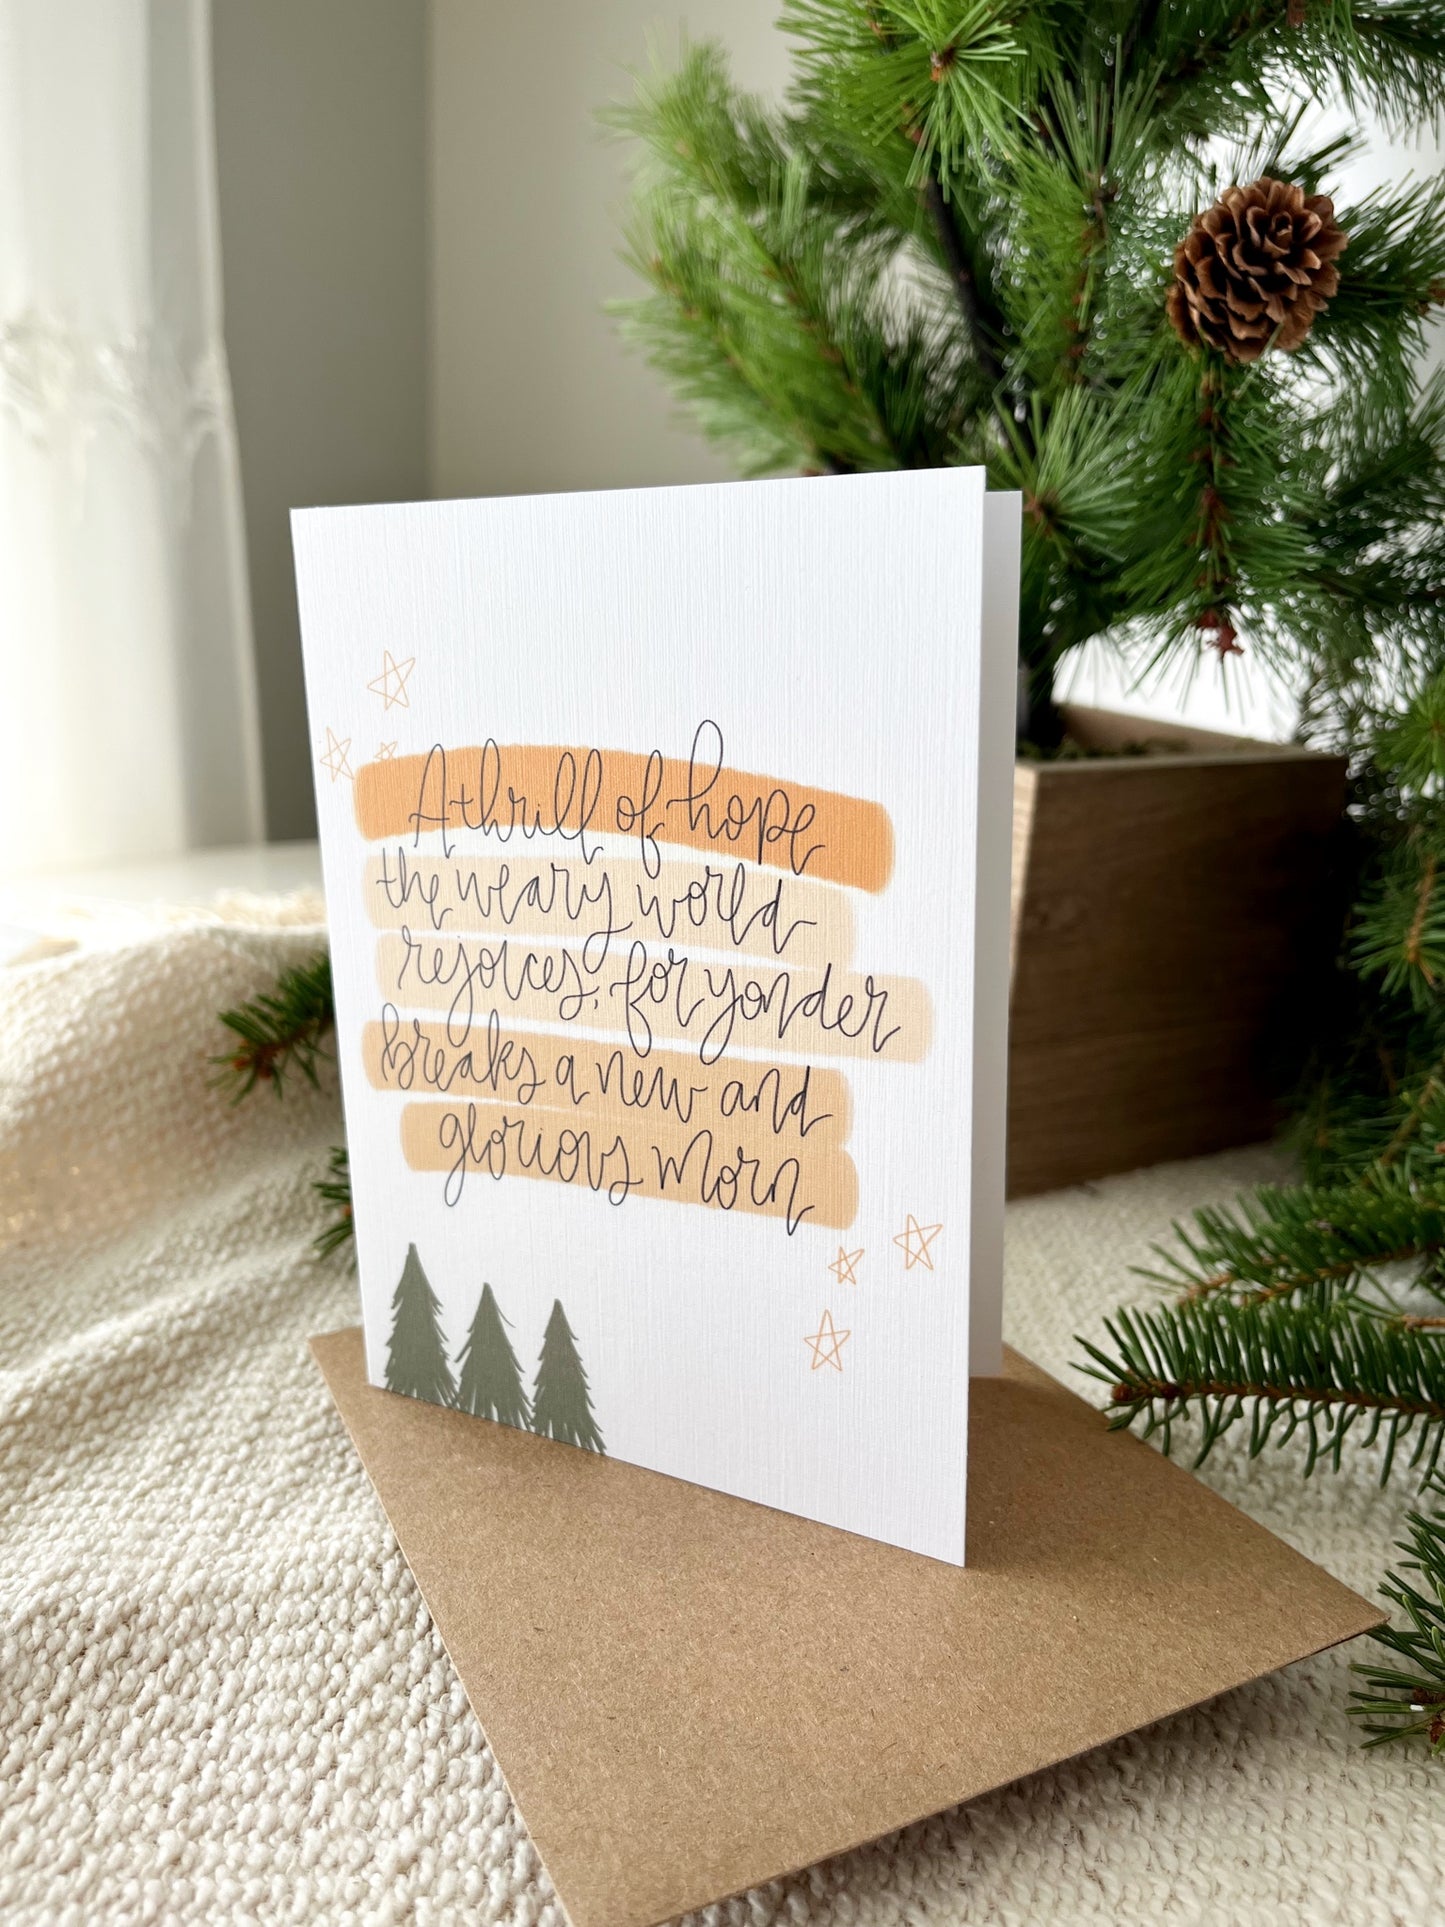 A thrill of hope
the weary world
rejoices, for yonder
breaks a new and
glorious morn